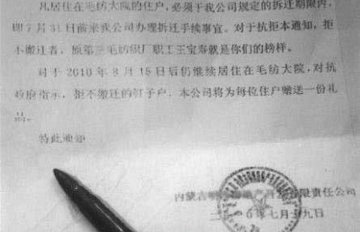 凡居住在毛纺大院的住户,必须于我公司规定的拆迁期限内,
即7月31日前来我公司办理拆迁手续事宜。对于抗拒本通知,拒
不搬迁者,原第三毛纺织厂职工王宝寿就是你们的榜样。
对于2010年8月15日后仍继续居住在毛纺大院,对抗
政府指示,拒不搬迁的钉子户,本公司将为每位住户赠送一份礼
特此通知
内蒙古 产开发有限责任公司
二 〇年七月 九日